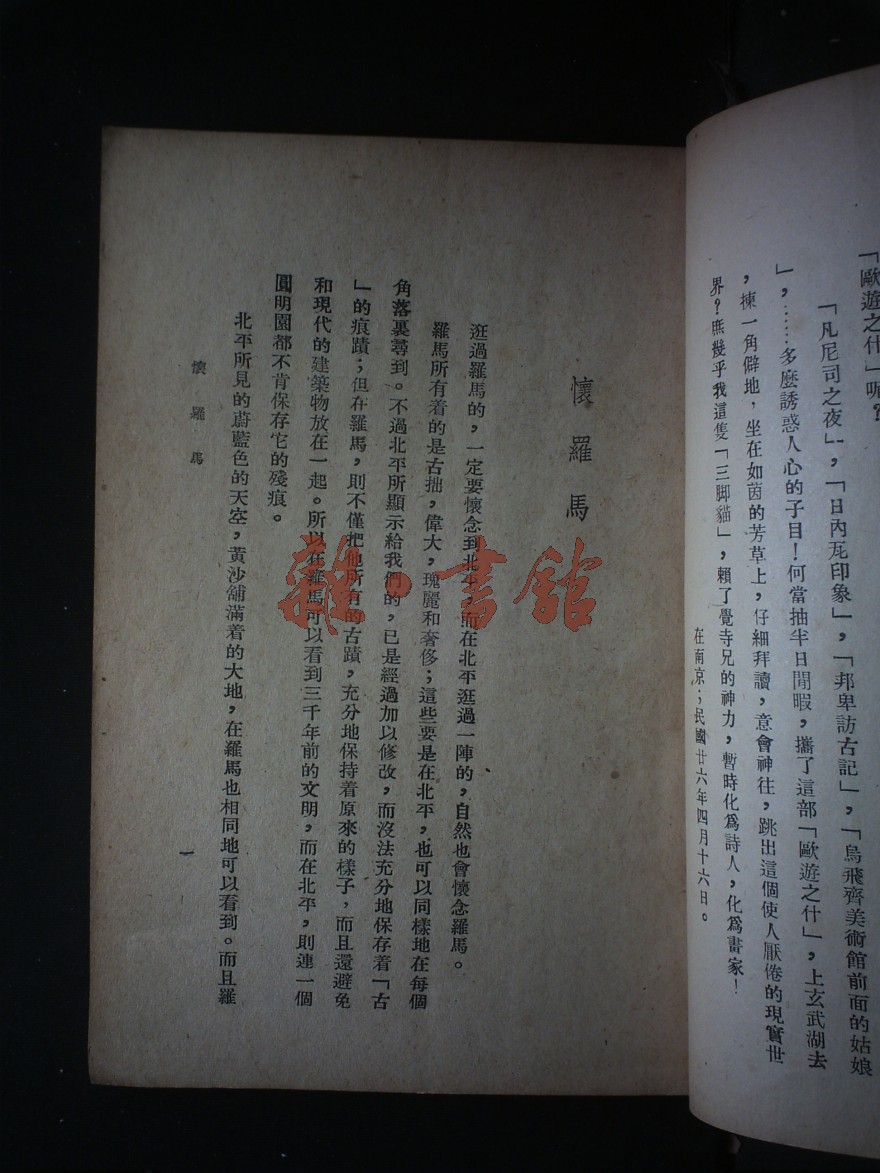 「歐遊之什」呢？
「凡尼司之夜」，「日內瓦印象」，「邦卑訪古記」，「烏飛齊美術館前面的姑娘
」，……多麼誘惑人心的子目！何當抽半日閒暇，攜了這部「歐遊之什」，上玄武湖去
，揀一角僻地，坐在如茵的芳草上，仔細拜讀，意會神往，跳出這個使人厭倦的現實世
界？庶幾乎我這隻「三脚貓」，賴了覺寺兄的神力，暫時化爲詩人，化爲畫家！
在南京；民國廿六年四月十六日。
懷羅馬
逛過羅馬的，一定要懷念到北平，而在北平逛過一陣的，自然也會懷念羅馬。
羅馬所有着的是古拙，偉大，瑰麗和奢侈；這些要是在北平，也可以同樣地在每個
角落裏尋到。不過北平所顯示給我們的，已是經過加以修改，而沒法充分地保存着「古
」的痕蹟；但在羅馬，則不僅把他所有的古蹟，充分地保持着原來的樣子，而且還避免
和現代的建築物放在一起。所以在羅馬可以看到三千年前的文明，而在北平，則連一個
圓明園都不肯保存它的殘痕。
北平所見的蔚藍色的天空，黃沙舖滿着的大地，在羅馬也相同地可以看到。而且羅
懷羅馬
一
雜·書館